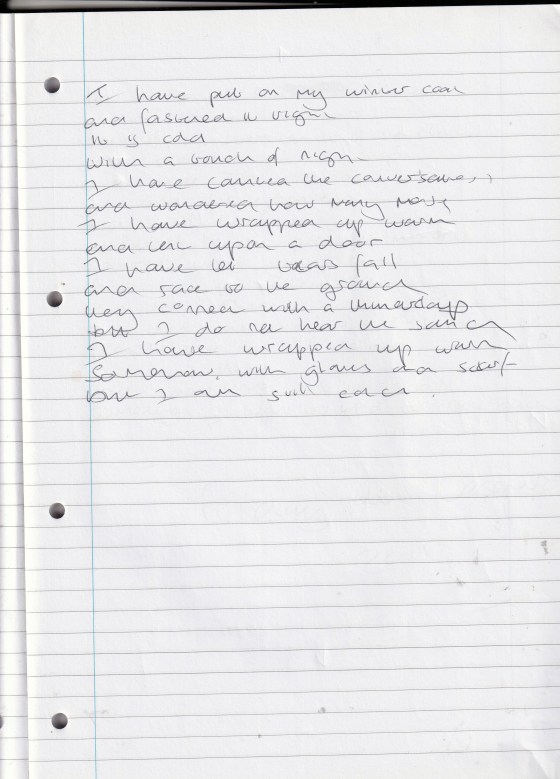 I have put on my winter coat
and fastened it right.
It is cold
with a touch of night.
I have the conversations,
and wondered how many more
I have wrapped up warm
and upon a door
I have let tears fall
and race to the ground
they connect with a thunderclap
but I do not hear the sound
I have wrapped up warm
Somehow, with gloves and a scarf
but I am still cold.